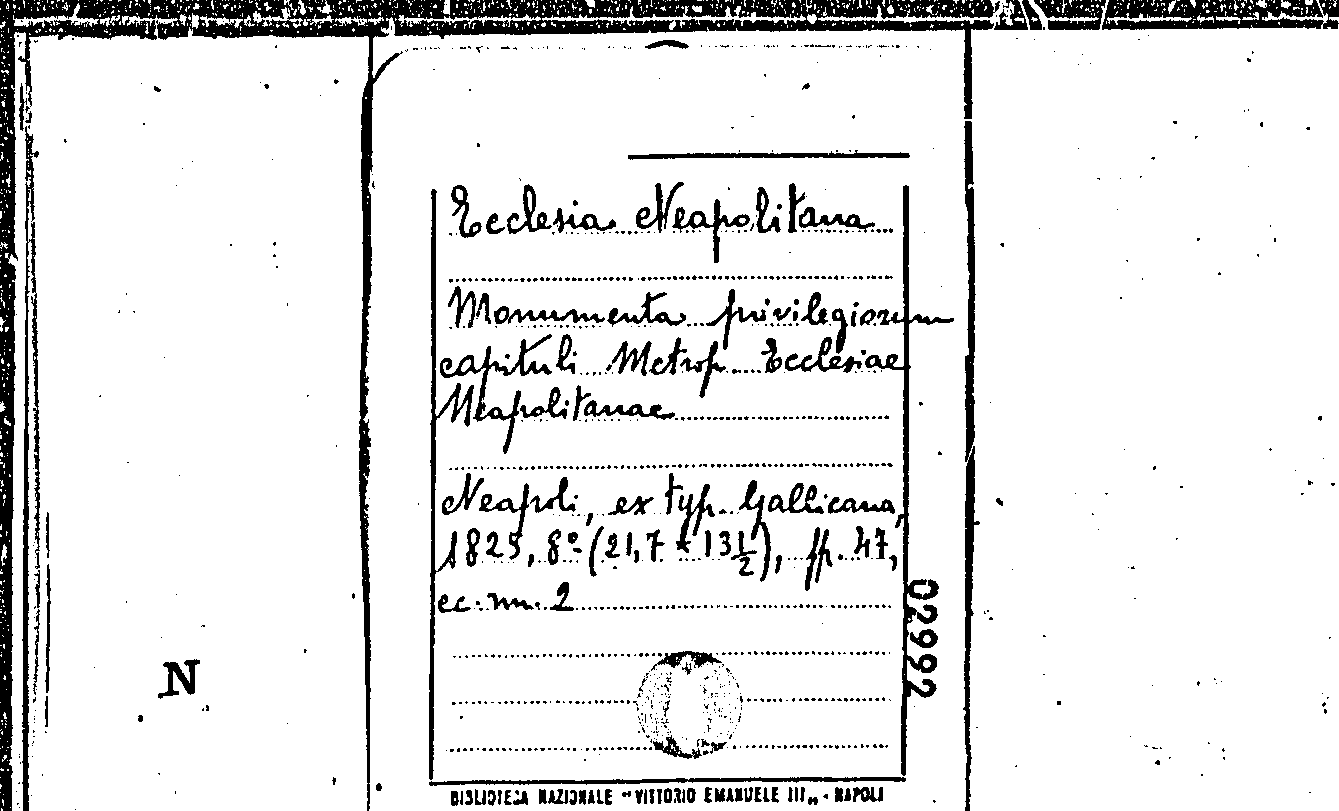 Ecclesia Neapolitana
Monumenta privilegiorum
capituli Metrop. Ecclesiae
Neapolitanae
Neapoli, ex typ. Gallicana,
1825, 8º (21,7 × 13 1/2), pp. 47,
cc. nn. 2
02992
N
BIBLIOTECA NAZIONALE "VITTORIO EMANUELE III„ - NAPOLI